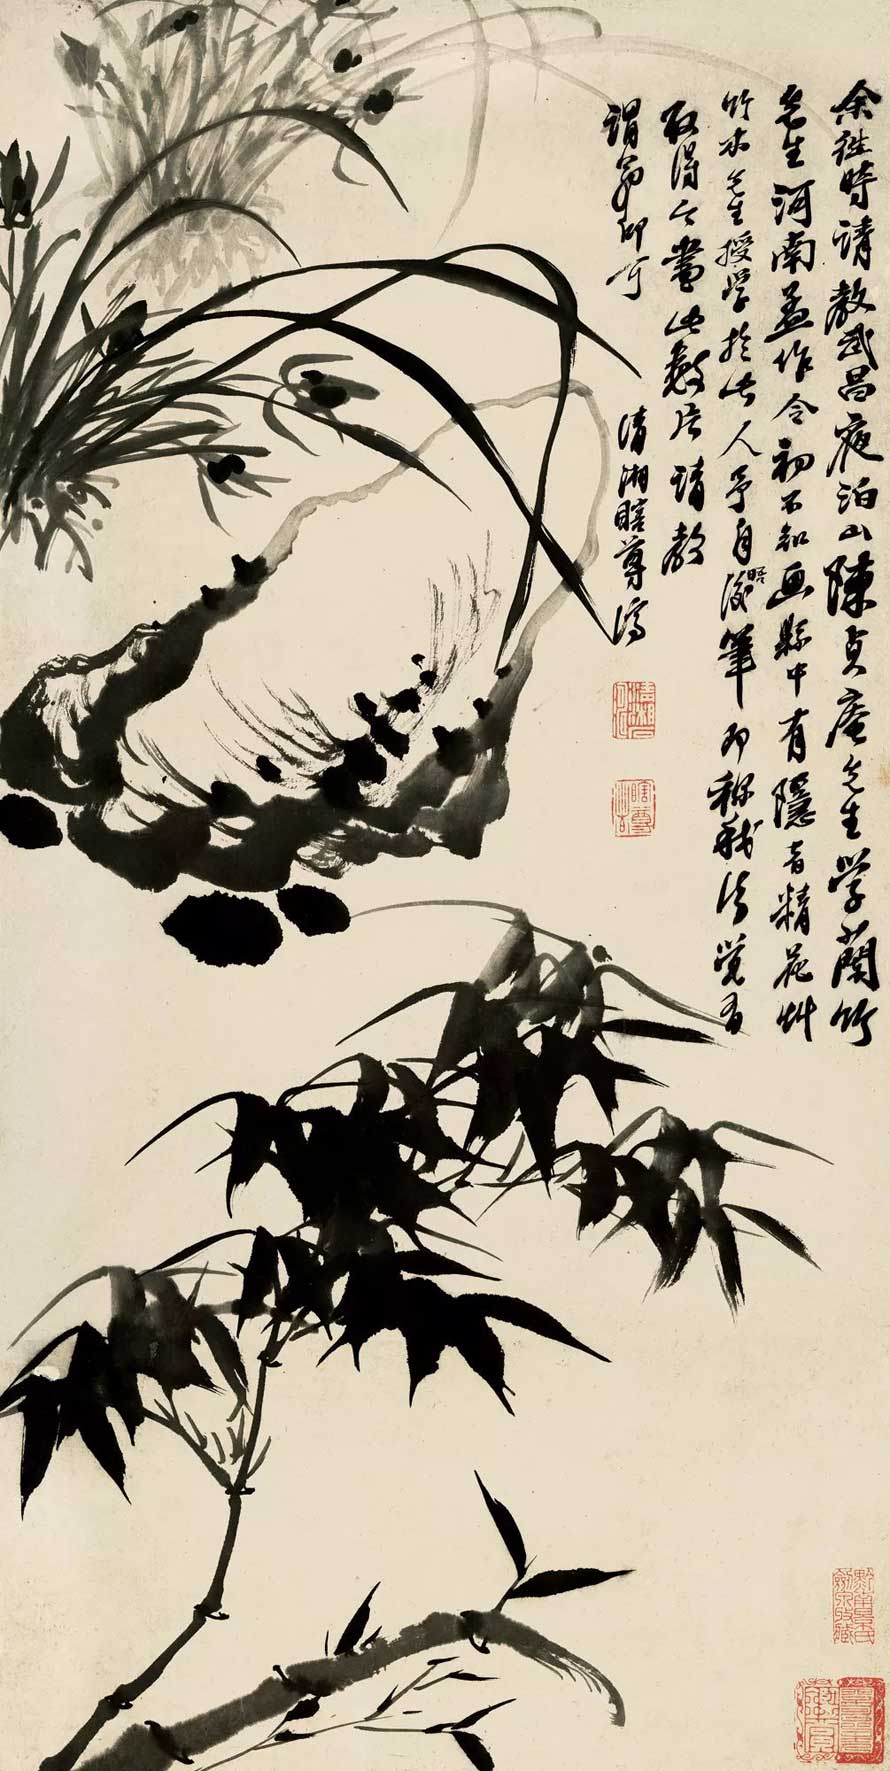 余往時請教武昌夜泊山陳貞庵先生学蘭竹
先生河南孟作令初不知画縣中有隱者精花艸
竹木先生授学於此人予自晤後筆即稱我法覺有
取得今畫此數片請教
謂翁即可
清湘瞎尊濟
瞎尊者